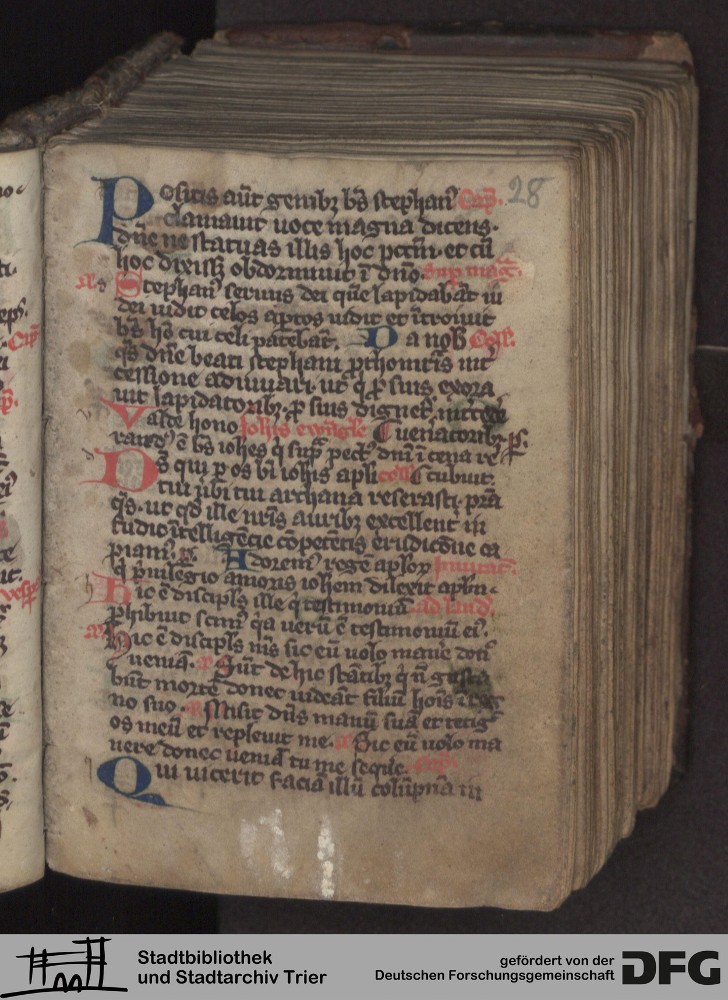 28
Positis aūt genibꝫ bs̄ stephan⁹ Cap̄.
clamauit uoce magna dicens.
dn̄e ne statuas illis hoc pctm̄. et cū
hoc dixissꝫ obdormiuit ī dn̄o. sup maḡ.
Stephan⁹ seruus dei quē lapidabāt iu
dei uidit celos aptos uidit et ītroiuit
bs̄ hō cui celi patebāt. Da nob Coll̄.
qs̄ dn̄e beati stephani ꝓthomr̄is int̄
cessione adiuuari. ut q ꝓ suis exora
uit lapidatoribꝫ ꝓ suis dignet⁹ int̄cede
Valde hono Johīs ewāgle Cuenatoribꝫ p̄s.
rand⁹ ē bs̄ iohēs q sup̄ pect⁹ dn̄i ī cena re
Ds̄ qui p os bī iohīs apli coll̄ cubuit.
tui u̇bi tui archana reserasti. pr̄a
qs̄. ut qd̄ ille nr̄is auribꝫ excellent̄ in
fudit ītelligēcie cōpetētis erudicōne ca
piam⁹. Adorem⁹ regē aplōꝝ Inuitat̄.
q̇ priuilegio amoris ioħem dilexit aplm̄.
Hic ē discipls̄ ille q̇ testimoniū ad laud̄.
phibuit scim⁹ qa uerū ē testimoniū ei⁹.
Hic ē discipls̄ m̄s sic eū uolo mane don̄
c ueniā. Sūt de hic stātibꝫ q n̄ gusta
būt mortē donec uideāt filiū hoīs ī reg
no suo. Misit dn̄s manū suā et tetiḡ
os meū et repleuit me. Sic eū uolo ma
nere donec ueniā tu me seque. Cap̄.
Qui uicerit faciā illū colūpnā in
Stadtbibliothek
und Stadtarchiv Trier
gefördert von der
Deutschen Forschungsgemeinschaft
DFG